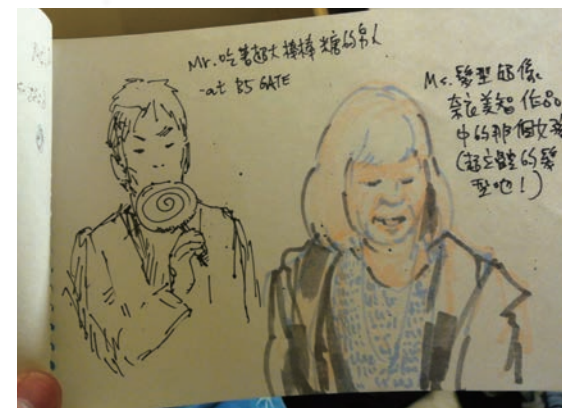 Mr. 吃著超大棒棒糖的男人
-at B5 GATE
Ms. 髮型好像
奈良美智作品
中的那個女孩
(超立體的髮
型吔!)